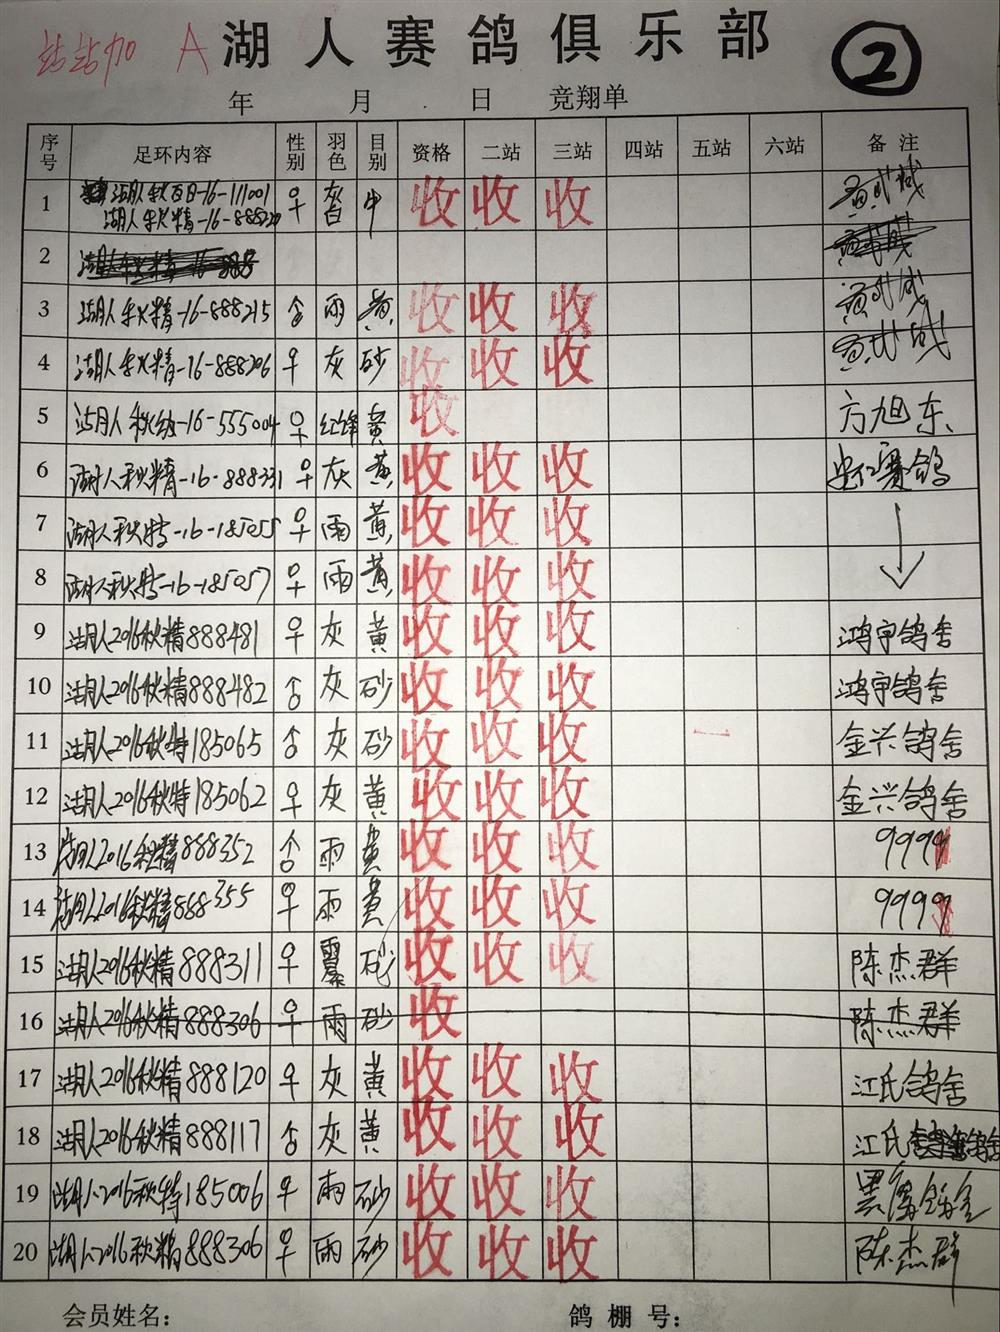 站站加 A 湖人赛鸽俱乐部 ②
年 月 日 竞翔单
序号 足环内容 性别 羽色 目别 资格 二站 三站 四站 五站 六站 备注
1 湖人秋百日-16-111001 ♀ 收 收 收
湖人秋精-16-888220
2
3 湖人秋精-16-888215 雨 黄 收 收 收
4 湖人秋精-16-888206 ♀ 灰 砂 收 收 收
5 湖人秋 -16-555004 ♀ 红 黄 收 方旭东
6 湖人秋精-16-888331 ♀ 灰 黄 收 收 收 赛鸽
7 湖人秋特-16-185055 ♀ 雨 黄 收 收 收
8 湖人秋特-16-185057 ♀ 雨 黄 收 收 收
9 湖人2016秋精888481 ♀ 灰 黄 收 收 收 鸿宇鸽舍
10 湖人2016秋精888482 灰 砂 收 收 收 鸿宇鸽舍
11 湖人2016秋特185065 灰 砂 收 收 收 一 金兴鸽舍
12 湖人2016秋特185062 ♀ 灰 黄 收 收 收 金兴鸽舍
13 湖人2016秋精888352 雨 黄 收 收 收 9999
14 湖人2016秋精888355 ♀ 雨 黄 收 收 收 9999
15 湖人2016秋精888311 ♀ 砂 收 收 收 陈杰群
16 湖人2016秋精888306 ♀ 雨 砂 收 陈杰群
17 湖人2016秋精888120 ♀ 灰 黄 收 收 收 江氏鸽舍
18 湖人2016秋精888117 灰 黄 收 收 收 江氏鸽舍
19 湖人2016秋特185006 ♀ 雨 砂 收 收 收
20 湖人2016秋精888306 ♀ 雨 砂 收 收 收 陈杰群
会员姓名： 鸽棚号：